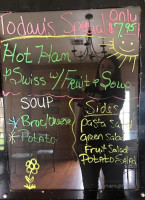 Today's Special Only
$7.95
Hot Ham
& Swiss w/ Fruit & Soup
SOUP
Broc/Cheese
Potato
Sides
Pasta Salad
Green Salad
Fruit Salad
Potato Salad